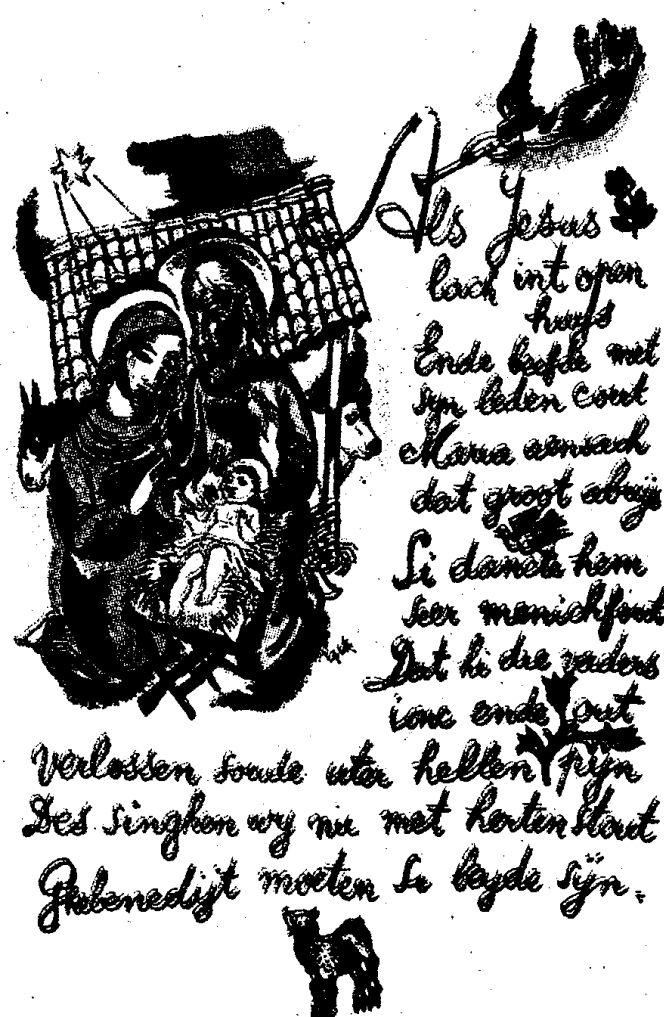 Als Jesus
lach int open
huys
Ende beefde met
syn leden cout
Maria aensach
dat groot abuys
Si dancte hem
seer menichfout
Dat hi die vaders
ionc ende out
verlossen soude uter hellen pijn
Des singhen wy nu met herten stout
Ghebenedijt moeten si beyde sijn.